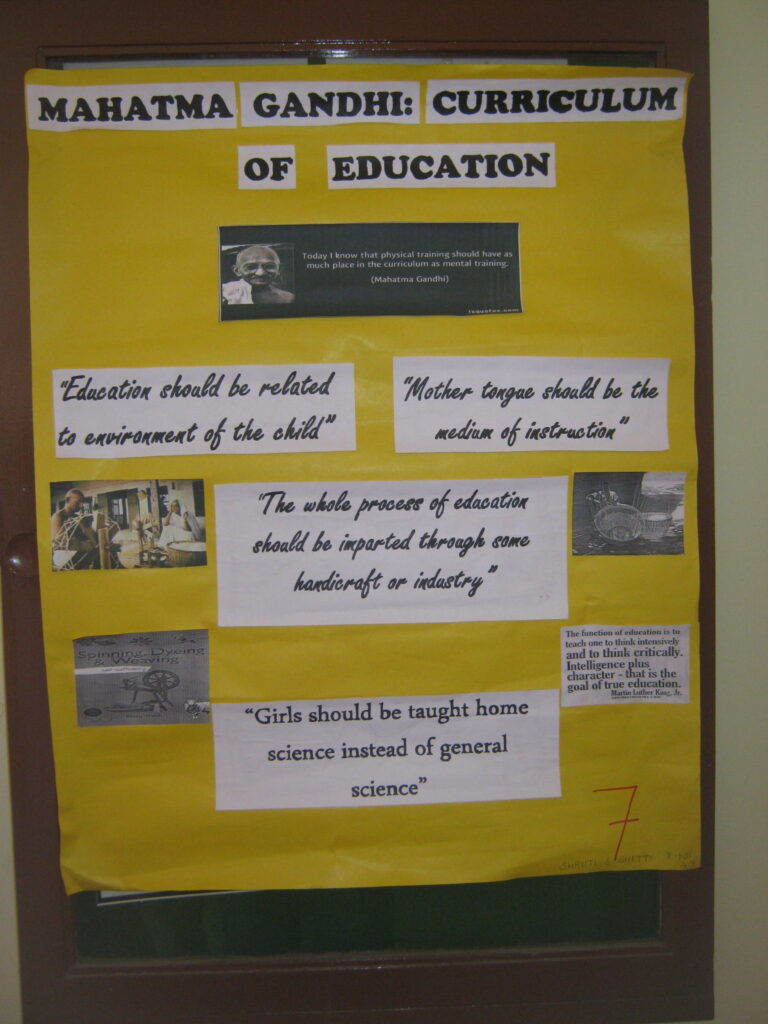 MAHATMA GANDHI: CURRICULUM
OF EDUCATION
Today I know that physical training should have as
much place in the curriculum as mental training.
(Mahatma Gandhi)
izquotes.com
"Education should be related
to environment of the child"
"Mother tongue should be the
medium of instruction"
"The whole process of education
should be imparted through some
handicraft or industry"
Spinning, Dyeing
& Weaving
The function of education is to
teach one to think intensively
and to think critically.
Intelligence plus
character - that is the
goal of true education.
Martin Luther King, Jr.
"Girls should be taught home
science instead of general
science"
7
SHETTY